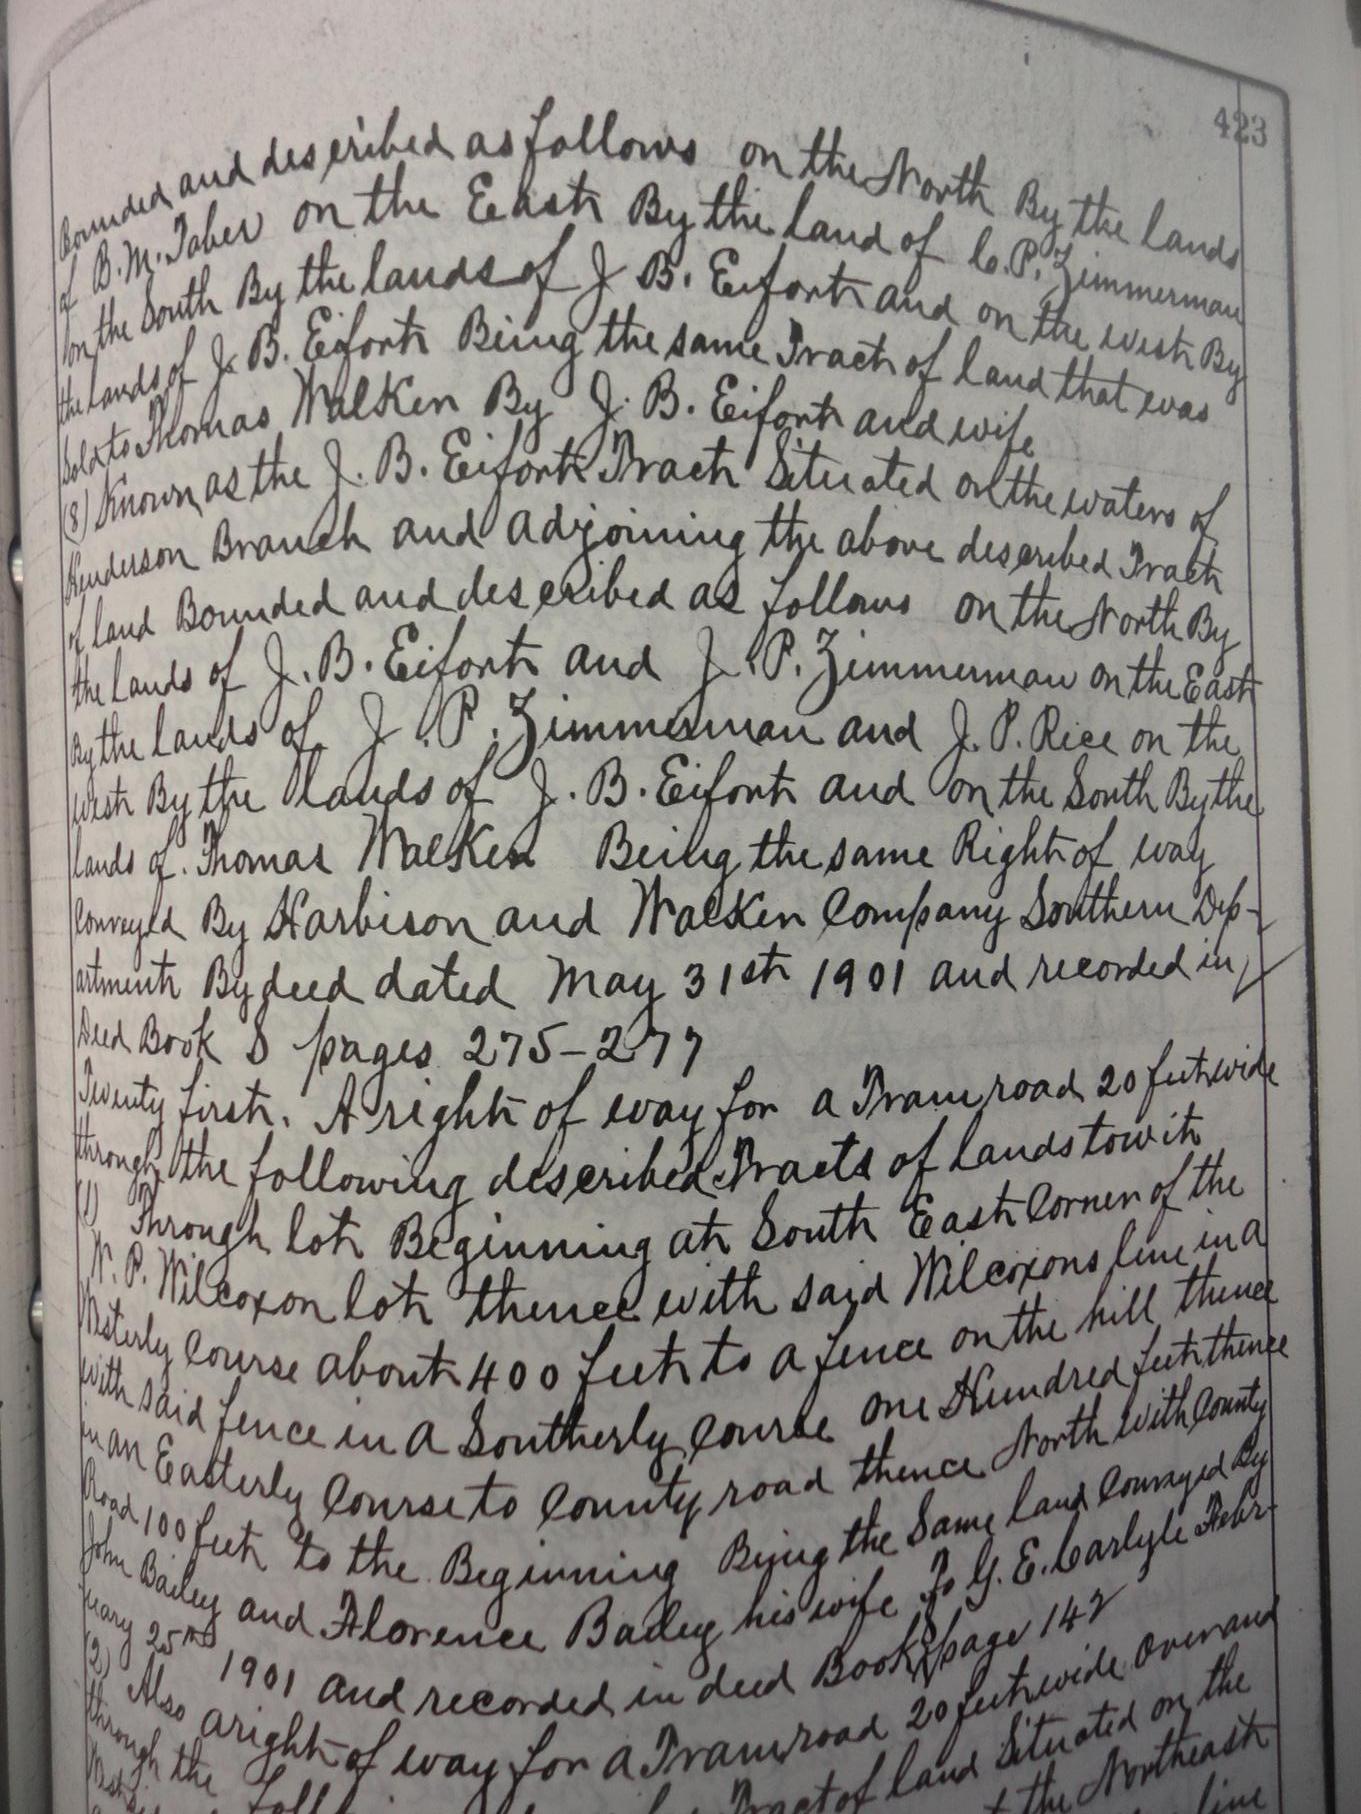 423
Bounded and described as follows on the North By the lands
of B. M. Taber on the East By the land of C. P. Zimmerman
on the South By the lands of J. B. Eifort and on the west By
the lands of J. B. Eifort Being the same Tract of land that was
Sold to Thomas Walker By J. B. Eifort and wife
(8) Known as the J. B. Eifort Tract Situated on the waters of
Henderson Branch and adjoining the above described Tract
of land Bounded and described as follows on the North By
the lands of J. B. Eifort and J. P. Zimmerman on the East
By the lands of J. P. Zimmerman and J. P. Rice on the
west By the lands of J. B. Eifort and on the South By the
lands of Thomas Walker Being the same Right of way
conveyed By Harbison and Walker Company Southern Dep-
artment By deed dated May 31st 1901 and recorded in
Deed Book 8 pages 275-277
Twenty first. A right of way for a Tram road 20 feet wide
through the following described Tracts of lands towit
(1) Through lot Beginning at South East Corner of the
W. P. Wilcoxon lot thence with said Wilcoxons line in a
Westerly Course about 400 feet to a fence on the hill thence
with said fence in a Southerly Course one Hundred feet thence
in an Easterly Course to County road thence North with County
Road 100 feet to the Beginning Being the Same land Conveyed By
John Bailey and Florence Bailey his wife To G. E. Carlyle Febr-
uary 25th 1901 and recorded in deed Book 8 page 142
(2) Also a right of way for a Tram road 20 feet wide over and
through the Tract of land Situated on the
the Northeast
line